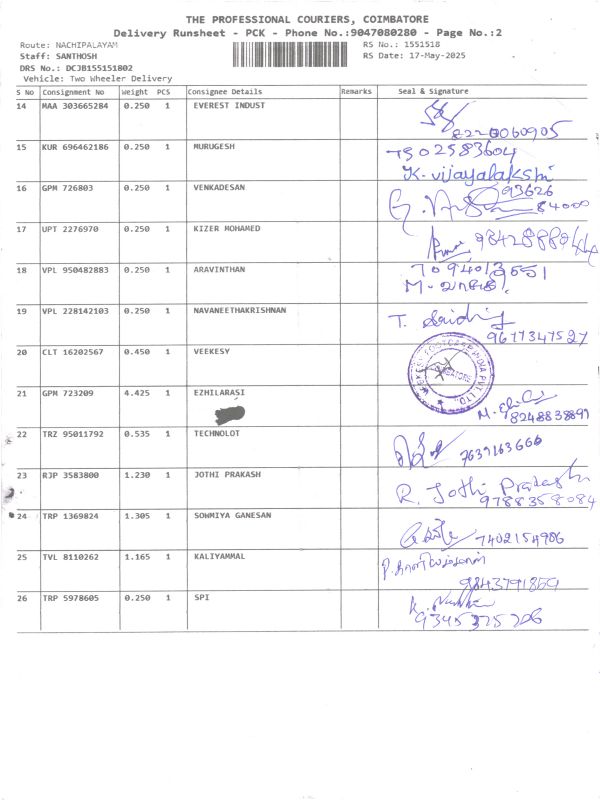 THE PROFESSIONAL COURIERS, COIMBATORE
Delivery Runsheet - PCK - Phone No.:9047080280 - Page No.:2
Route: NACHIPALAYAM
RS No.: 1551518
Staff: SANTHOSH
RS Date: 17-May-2025
DRS No.: DCJB155151802
Vehicle: Two Wheeler Delivery
S No Consignment No Weight PCS Consignee Details Remarks Seal & Signature
14 MAA 303665284 0.250 1 EVEREST INDUST
8220060905
15 KUR 696462186 0.250 1 MURUGESH 7502583604
K. vijayalakshi
16 GPM 726803 0.250 1 VENKADESAN 93626
84000
17 UPT 2276970 0.250 1 KIZER MOHAMED
18 VPL 950482883 0.250 1 ARAVINTHAN
M.
19 VPL 228142103 0.250 1 NAVANEETHAKRISHNAN
T.
9677347527
20 CLT 16202567 0.450 1 VEEKESY
21 GPM 723209 4.425 1 EZHILARASI
M.
8248838899
22 TRZ 95011792 0.535 1 TECHNOLOT
7639163666
23 RJP 3583800 1.230 1 JOTHI PRAKASH
R. Jothi Prakash
9788358084
24 TRP 1369824 1.305 1 SOWMIYA GANESAN
7402154986
25 TVL 8110262 1.165 1 KALIYAMMAL
9843791859
26 TRP 5978605 0.250 1 SPI
K.
9345375206